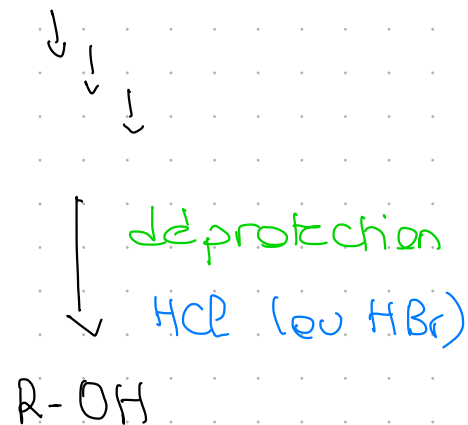 déprotection
HCl (ou HBr)
R-OH